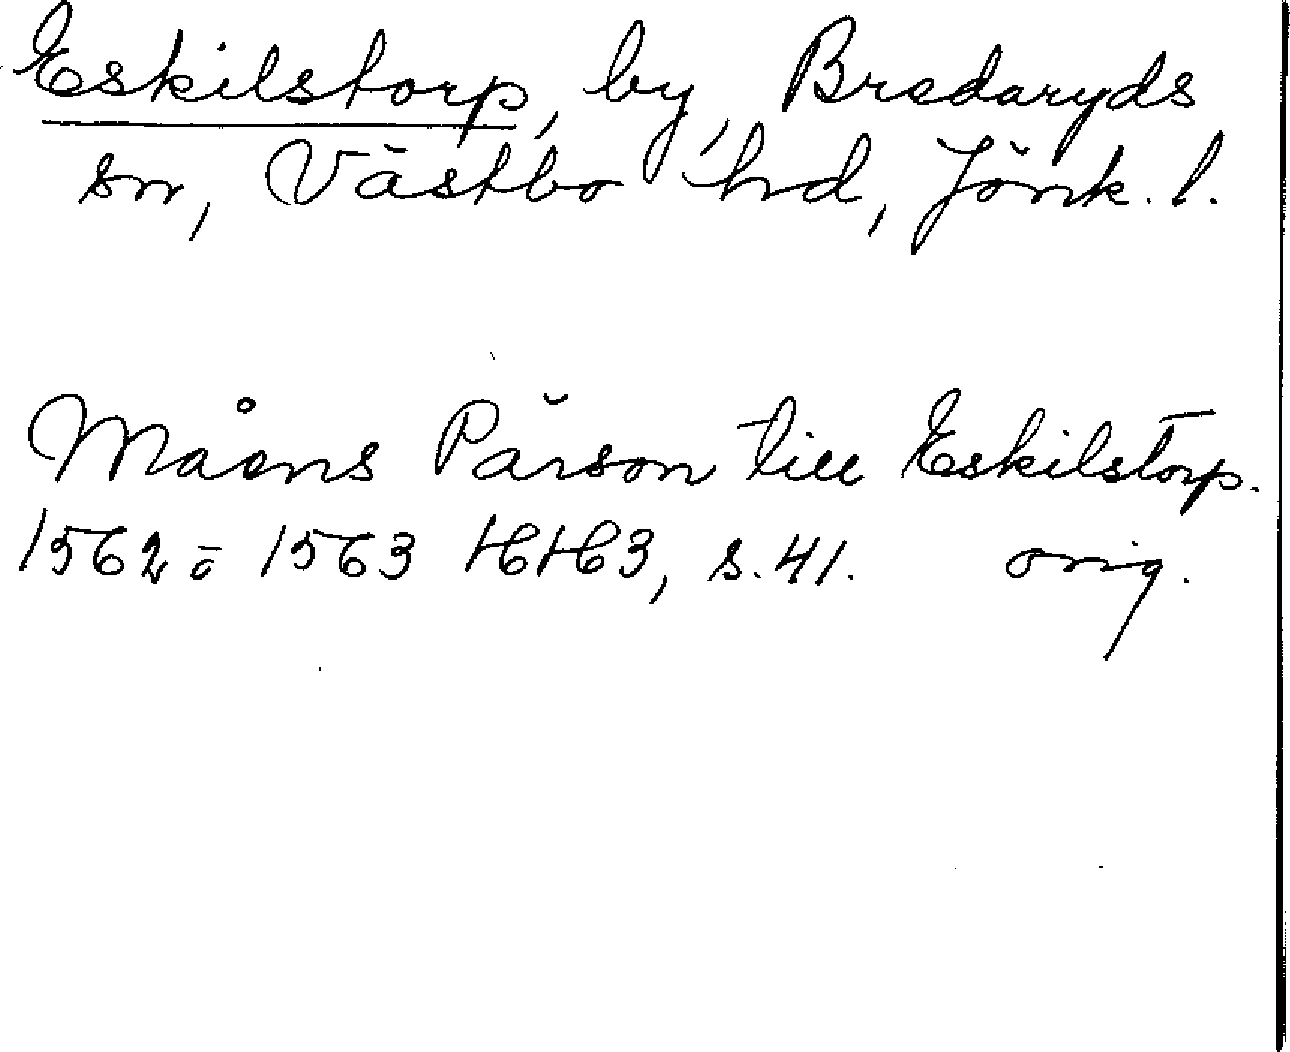 Eskilstorp, by, Bredaryds
sn, Västbo hd, Jönk. l.
Måens Pärson till Eskilstorp.
1562 o 1563 HH63, s. 41. orig.